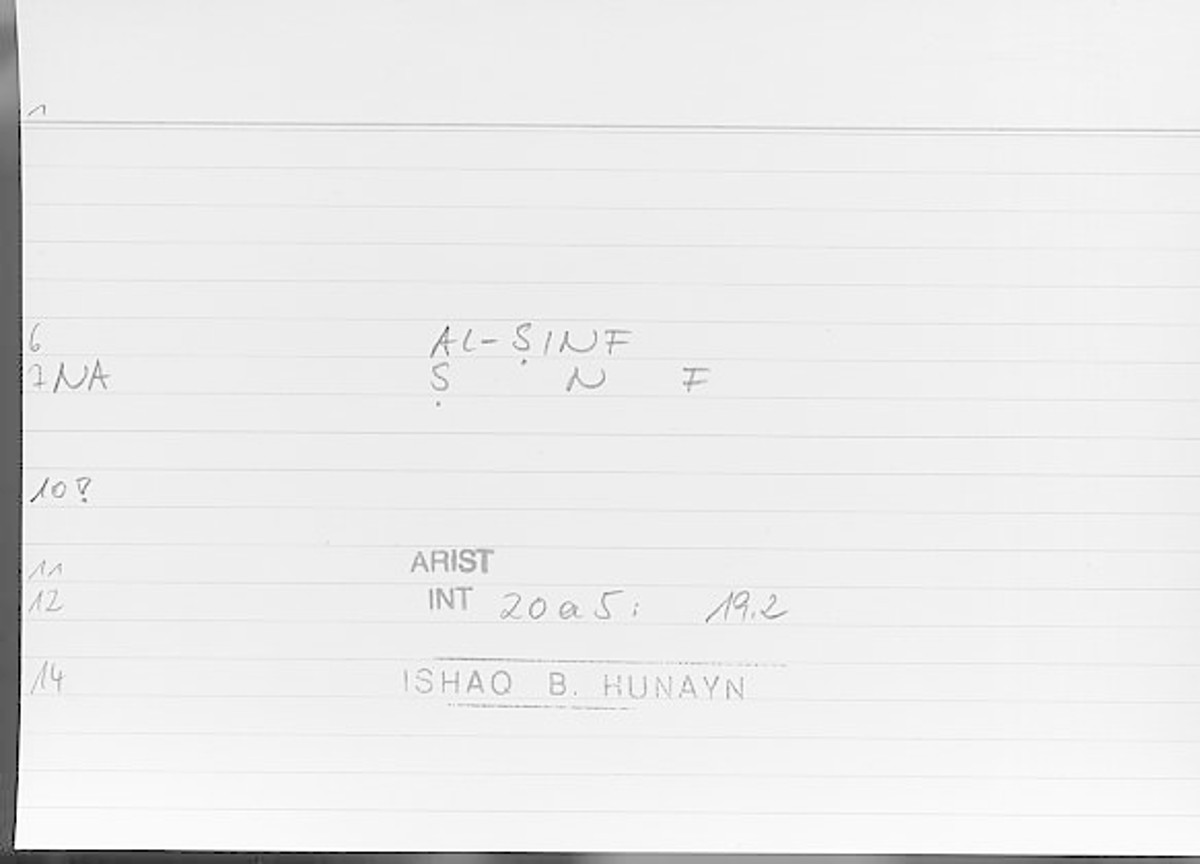 1
6 AL-ṢINF
7NA Ṣ N F
10?
11 ARIST
12 INT 20a5: 19.2
14 ISHAQ B. HUNAYN